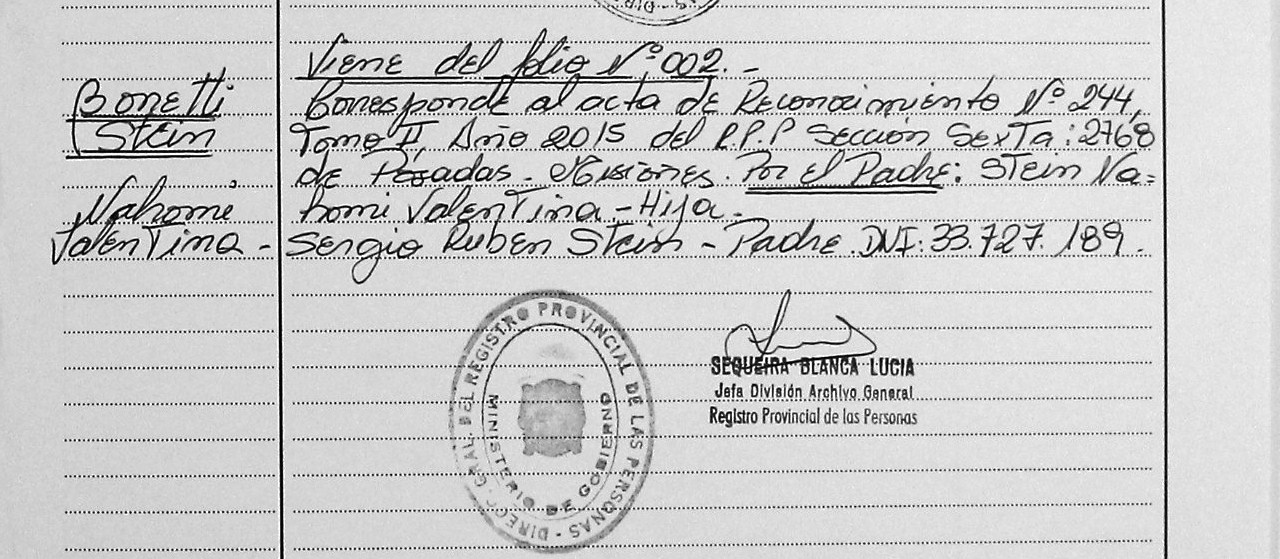 Viene del folio Nº 002. -
Bonetti
Stein
Nahomi
Valentina -
Corresponde al acta de Reconocimiento Nº 244,
Tomo II, Año 2015 del R.P.P Sección Sexta: 2768
de Posadas - Misiones. Por el Padre: Stein Na=
homi Valentina - Hija -
Sergio Ruben Stein - Padre. DNI: 33.727.189.
DIRECC. GRAL. DEL REGISTRO PROVINCIAL DE LAS PERSONAS -
MINISTERIO DE GOBIERNO
SEQUEIRA BLANCA LUCIA
Jefa División Archivo General
Registro Provincial de las Personas